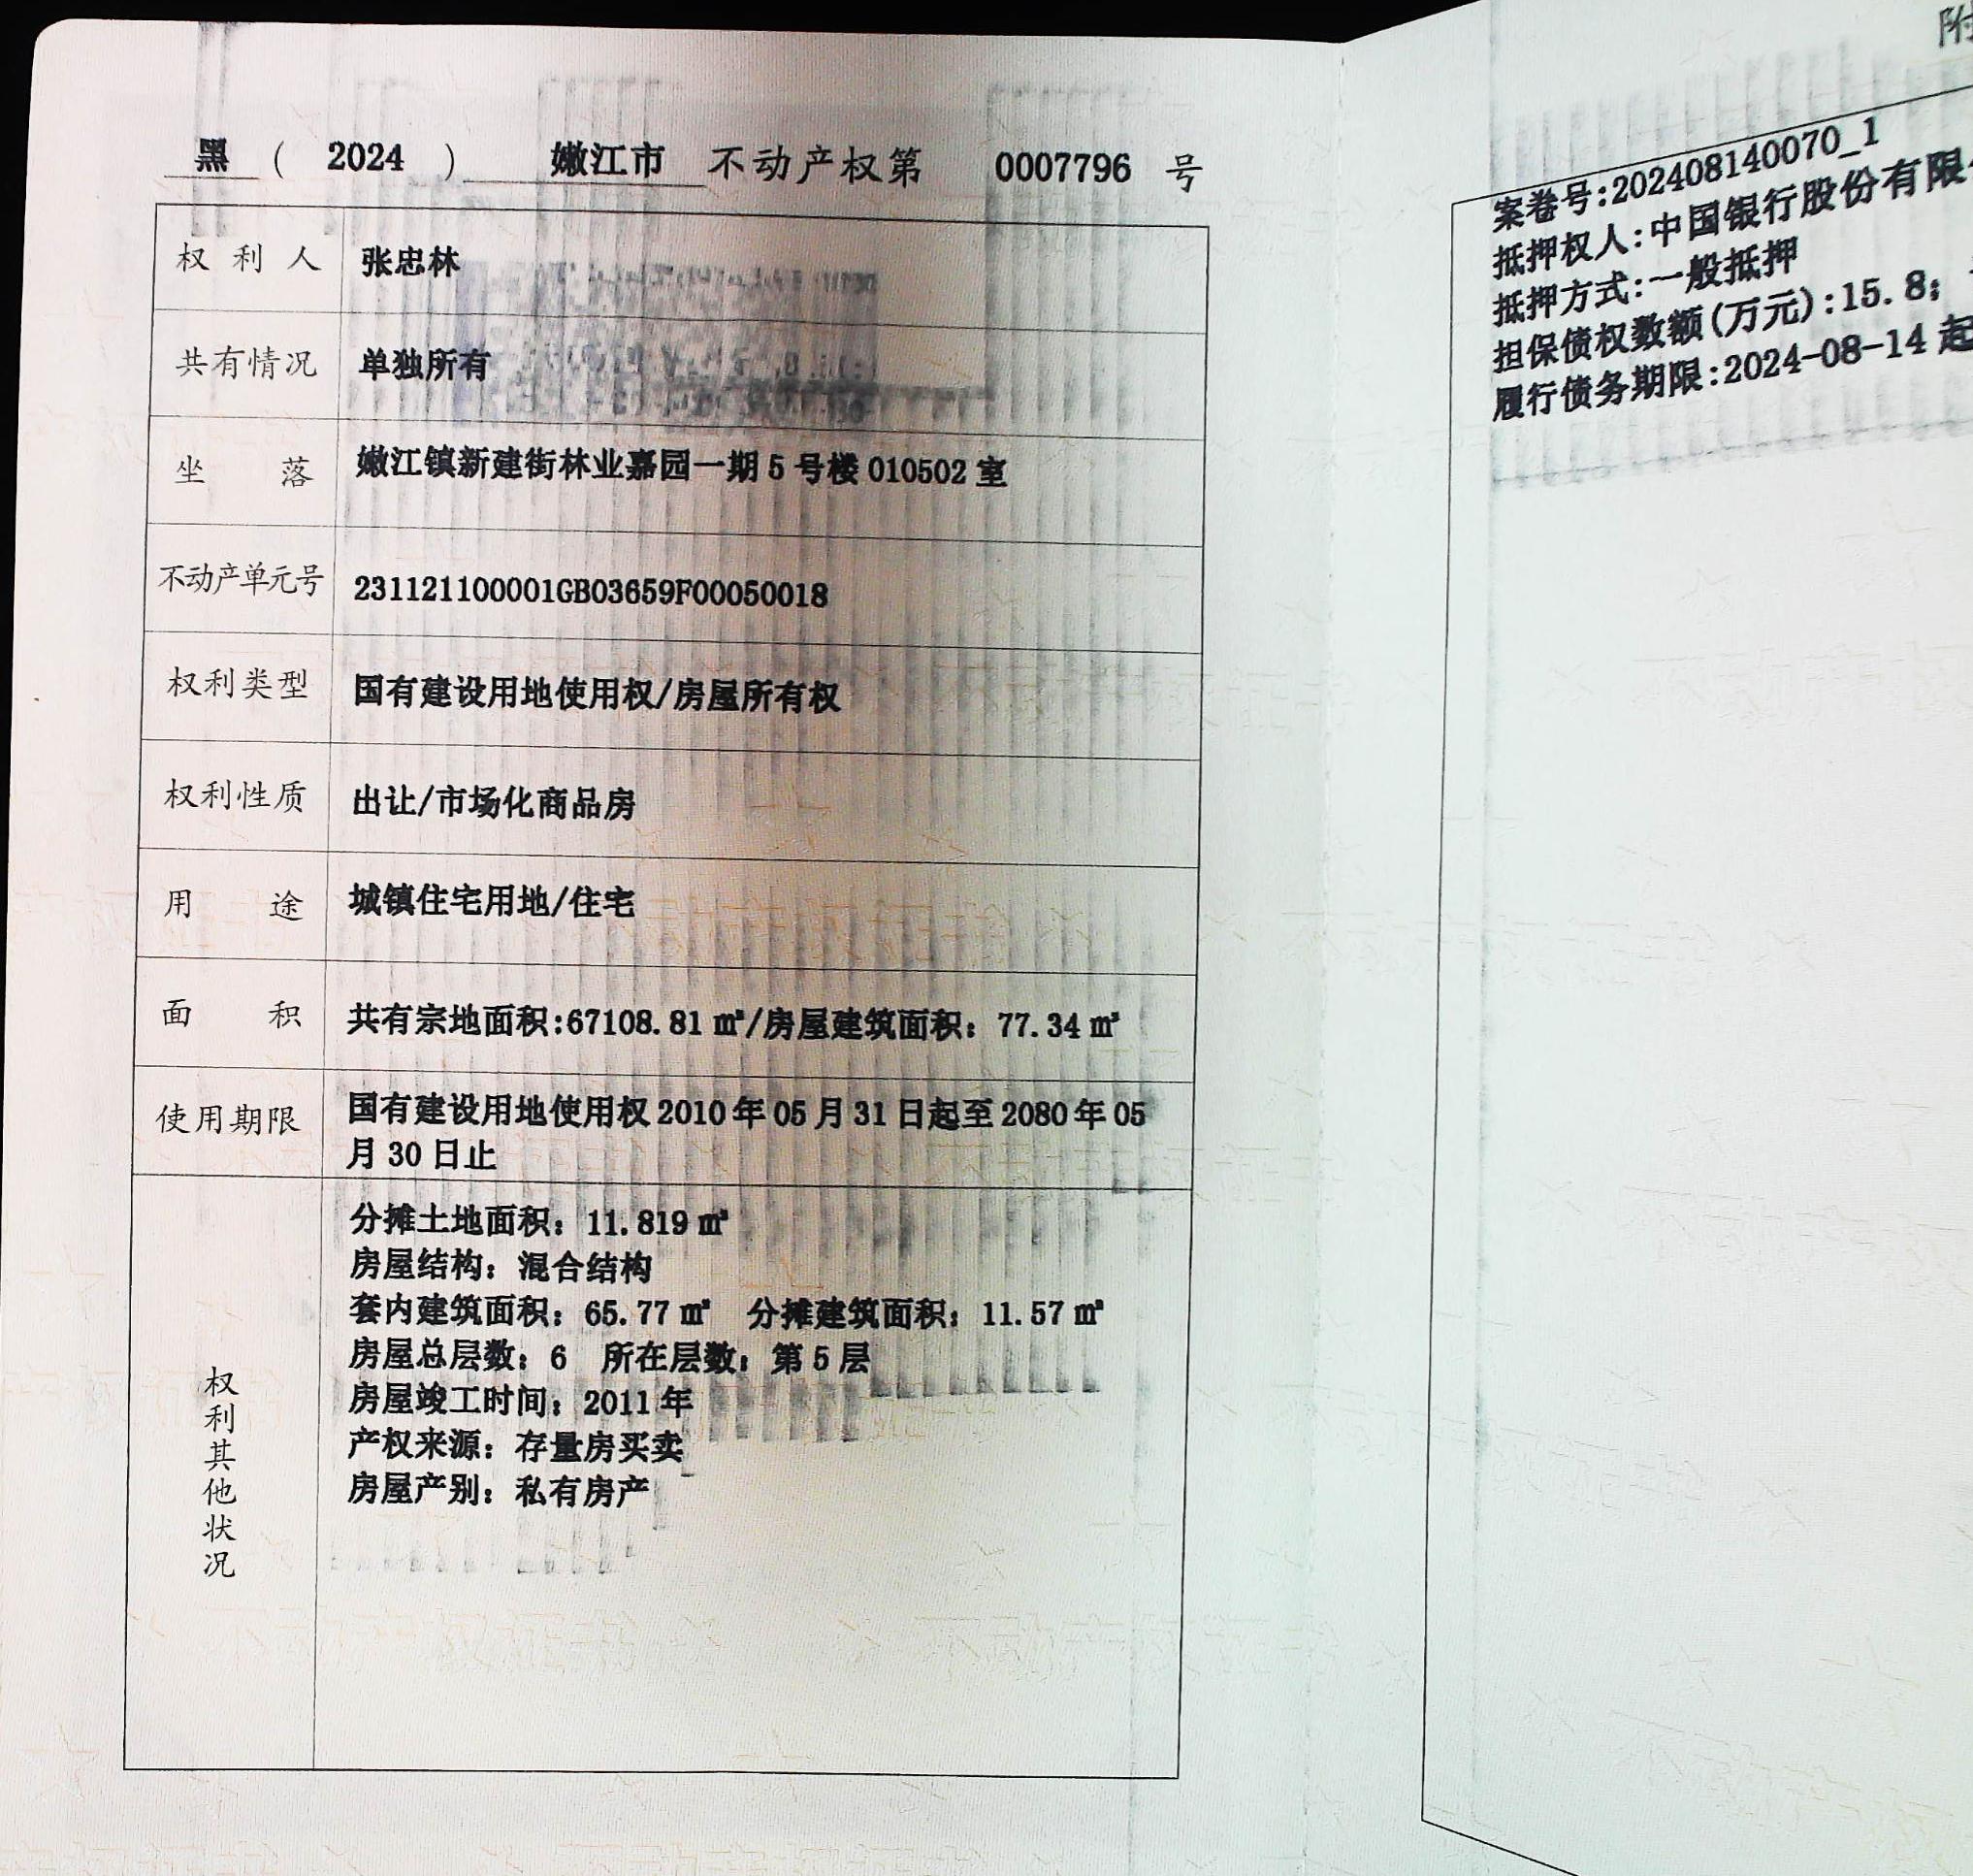 黑 ( 2024 ) 嫩江市 不动产权第 0007796 号
权利人 张忠林
共有情况 单独所有
坐落 嫩江镇新建街林业嘉园一期 5 号楼 010502 室
不动产单元号 231121100001GB03659F00050018
权利类型 国有建设用地使用权/房屋所有权
权利性质 出让/市场化商品房
用途 城镇住宅用地/住宅
面积 共有宗地面积:67108.81 ㎡/房屋建筑面积：77.34 ㎡
使用期限 国有建设用地使用权 2010 年 05 月 31 日起至 2080 年 05
月 30 日止
权利其他状况
分摊土地面积：11.819 ㎡
房屋结构：混合结构
套内建筑面积：65.77 ㎡ 分摊建筑面积：11.57 ㎡
房屋总层数：6 所在层数：第 5 层
房屋竣工时间：2011 年
产权来源：存量房买卖
房屋产别：私有房产
附
案卷号:202408140070_1
抵押权人:中国银行股份有限
抵押方式:一般抵押
担保债权数额(万元):15.8;
履行债务期限:2024-08-14 起